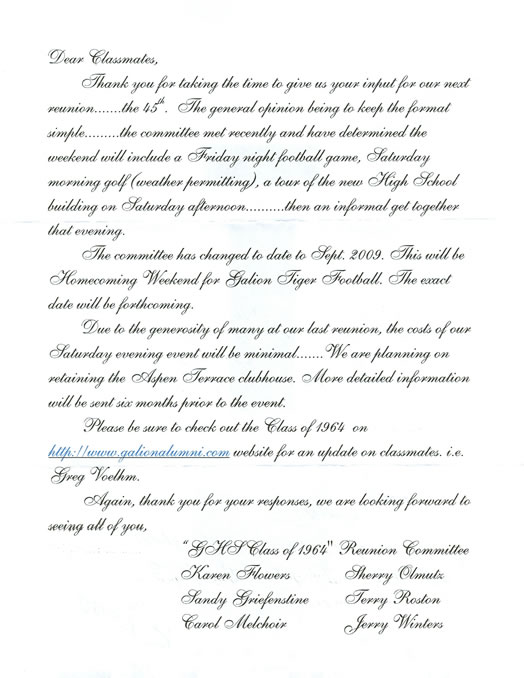 Dear Classmates,
Thank you for taking the time to give us your input for our next
reunion.......the 45th. The general opinion being to keep the format
simple.........the committee met recently and have determined the
weekend will include a Friday night football game, Saturday
morning golf (weather permitting), a tour of the new High School
building on Saturday afternoon..........then an informal get together
that evening.
The committee has changed to date to Sept. 2009. This will be
Homecoming Weekend for Galion Tiger Football. The exact
date will be forthcoming.
Due to the generosity of many at our last reunion, the costs of our
Saturday evening event will be minimal.......We are planning on
retaining the Aspen Terrace clubhouse. More detailed information
will be sent six months prior to the event.
Please be sure to check out the Class of 1964 on
http://www.galionalumni.com website for an update on classmates. i.e.
Greg Voelhm.
Again, thank you for your responses, we are looking forward to
seeing all of you,
"GHS Class of 1964" Reunion Committee
Karen Flowers Sherry Olmutz
Sandy Griefenstine Terry Roston
Carol Melchoir Jerry Winters